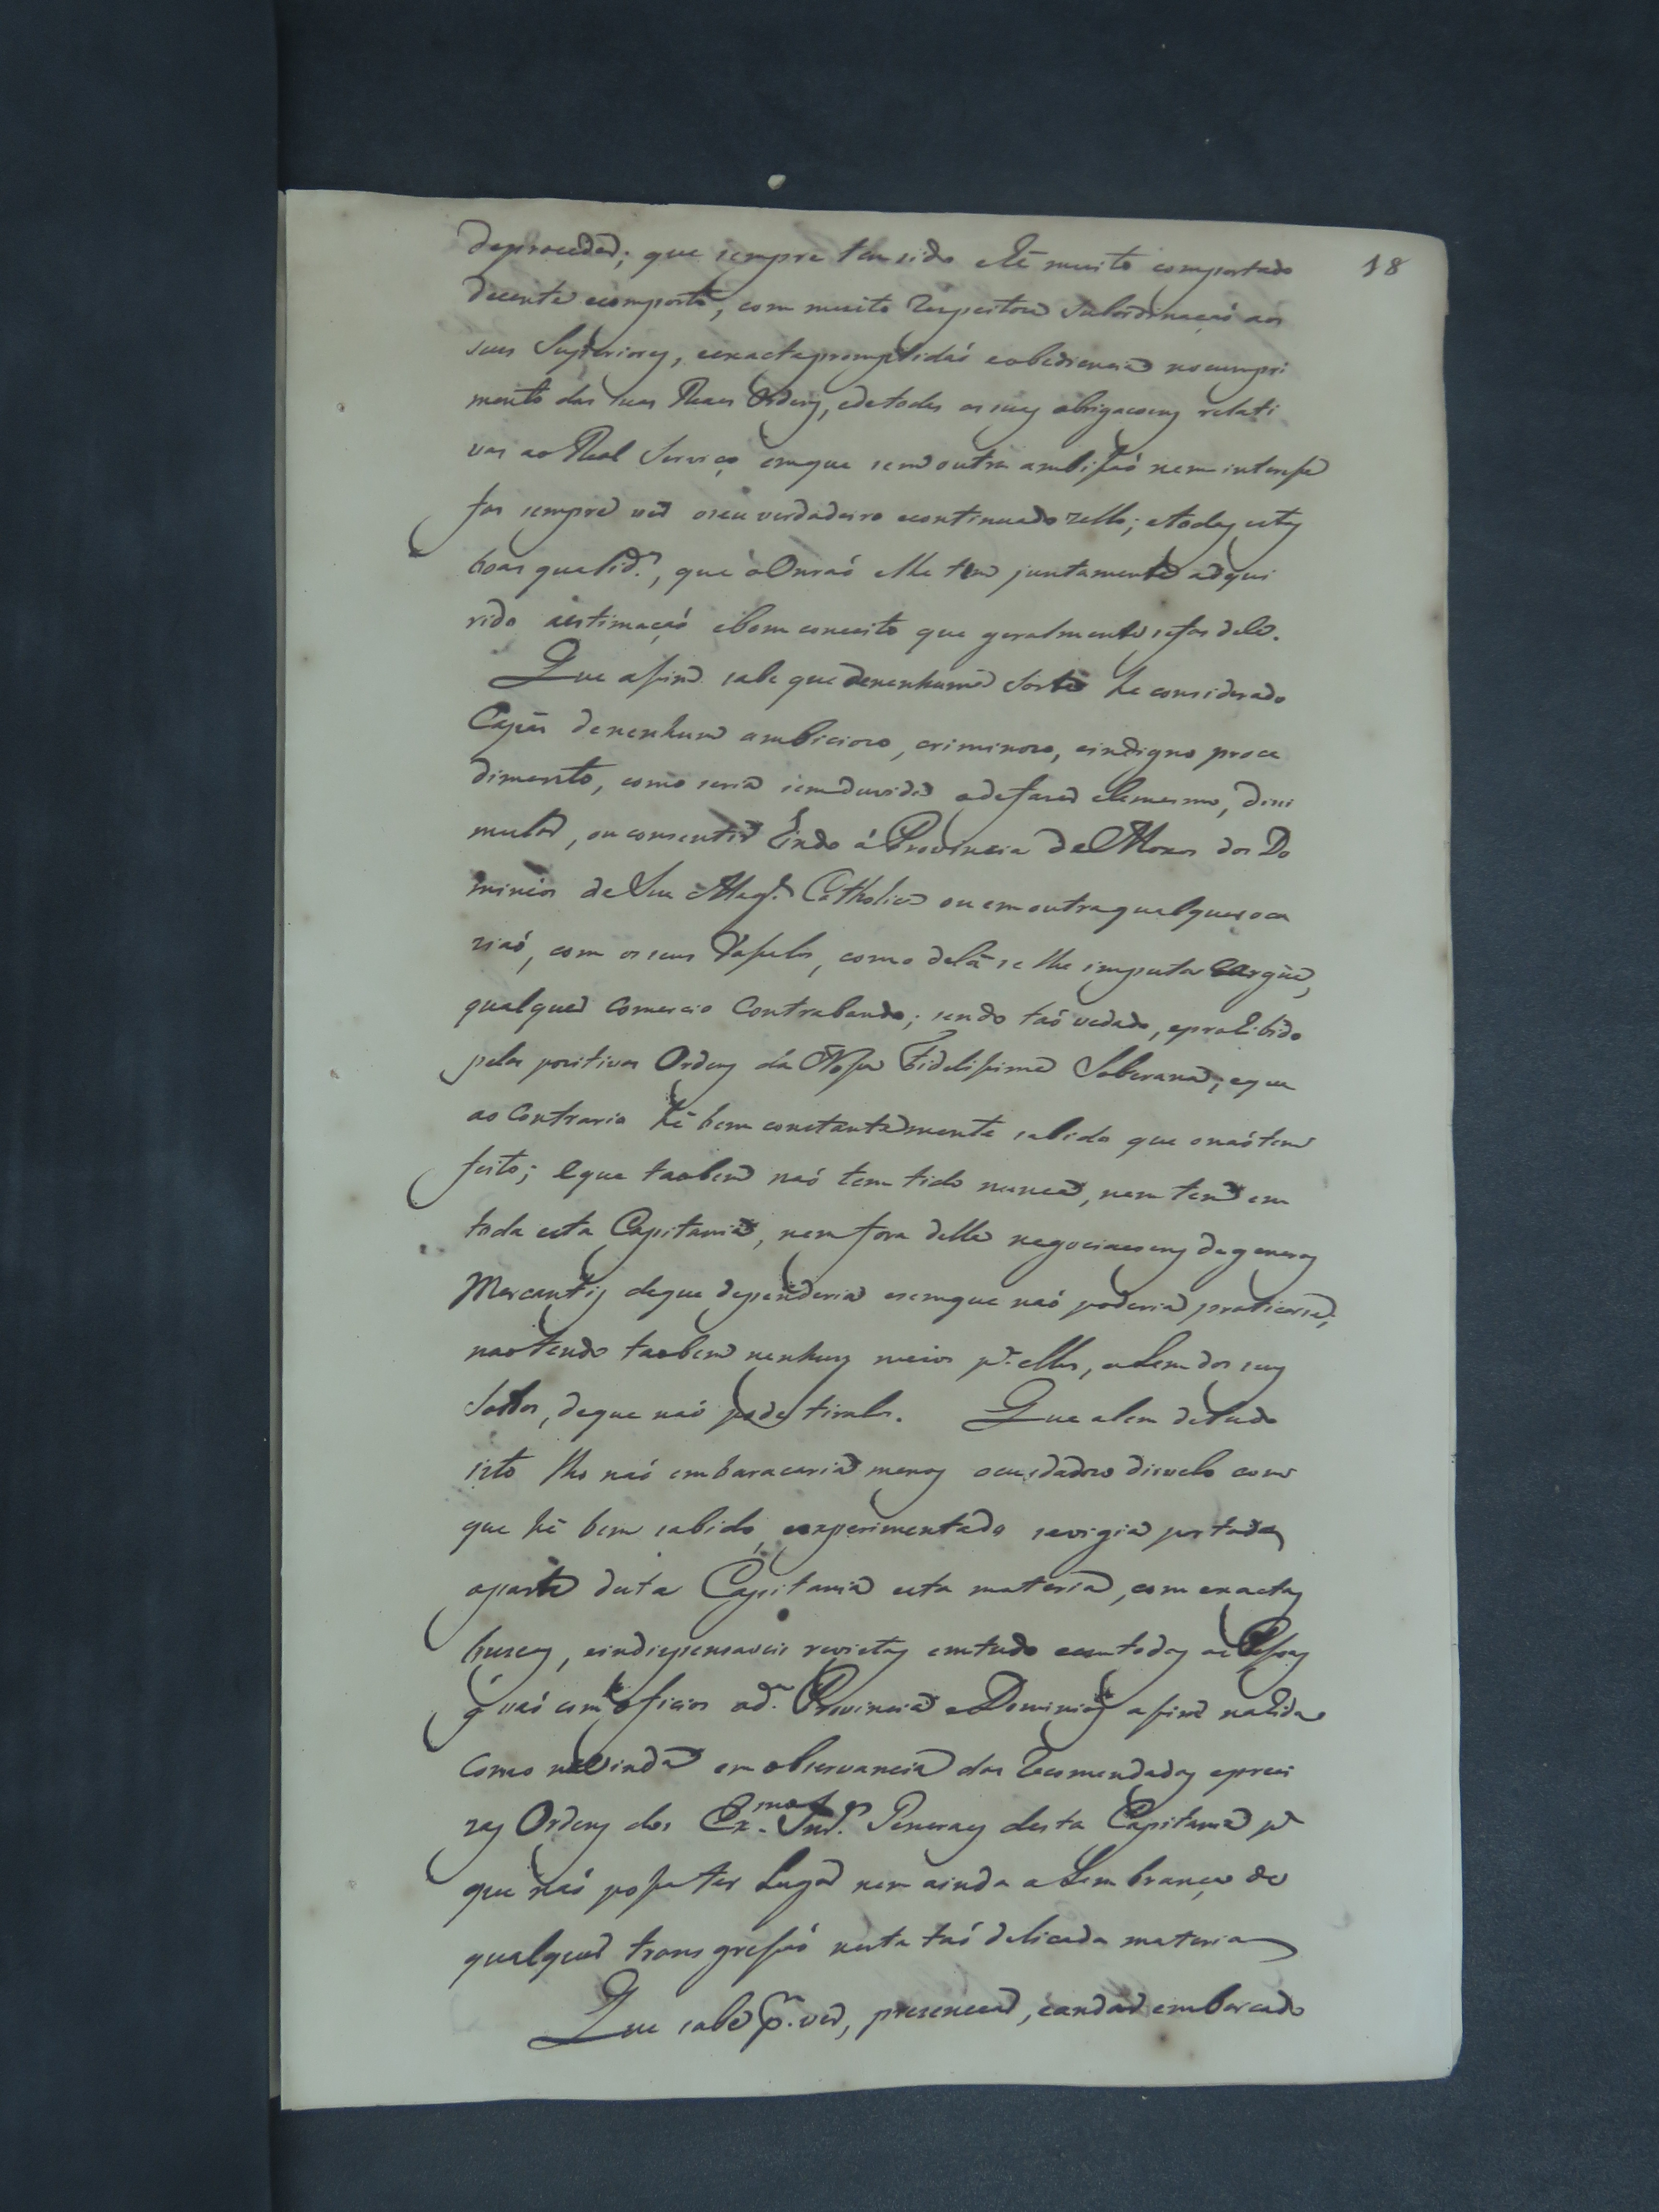 18
deproceder; que sempre tem sido elle muito comportado
decente ecomporto, com muito respeitou Subordinaçaó aos
seus Superiores, eexactapromptidaó eobediencia nocumpri
mento das suas Reaes Ordens, edetodas as suas obrigacoens relati
vas ao Real Serviço emque sem outra ambissaó nem interesse
fas sempre ver oseu verdadeiro econtinuado zello; etodas estas
boas qualid.es, que lhe tem juntamente adqui
rido aestimaçaó ebom conceito que geralmente sefas dele.
Que assim sabe que denenhuma Sorte he considerado
Capás denenhum ambicioso, criminozo, eindigno proce
dimento, como seria semduvida odefazer elemesmo, desi
mular, ou consentir hindo á Provincia de Moxos dos Do
minios de Sua Mag.e Catholica ou em outraqualqueroca
ziaó, com os seus Vassalos, como delá se lhe imputa eargue,
qualquer Comercio Contrabando; sendo taó vedado, eprohibido
pelas positivas Ordens da Nossa Fidelissima Soberana; eque
ao Contrario hé bem constantemente sabido que onaótem
feito; eque taobem naó tem tido nunca, nem tem em
toda esta Capitania, nem fora della negociacoens degeneros
Mercantis deque dependeria esemque naó poderia praticarse;
naotendo taobem nenhuns meios p.a elles, alem dos seus
Soldos, deque naó pode tiralos. Que alem detudo
isto lho naó embaracaria menos ocuidadozo disvelo com
que hé bem sabido, eexperimentado sevigia portoda
aparte desta Capitania esta materia, com exactas
buscas, eindispensaveis revistas emtudo eemtodas as Pessoas
q̃ vaó com oficios ad.a Provincia eDominios assim nahida
como navinda em observancia das recomendadas epreci
zas Ordens dos Ex.mos Snr.es Generaes desta Capitania p.a
que naó possa ter Lugar nem ainda aLembrança de
qualquer transgressaó nesta taó delicada materia
Que sabe p.r ver, presencear, eandar embarcado